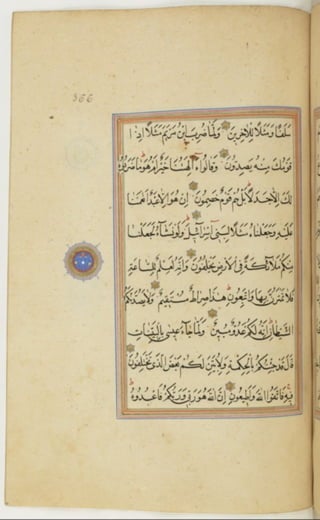 366
سَلَفًا وَمَثَلًا لِلْآخِرِينَ وَلَمَّا ضُرِبَ ابْنُ مَرْيَمَ مَثَلًا اِذَا
قَوْمُكَ مِنْهُ يَصِدُّونَ وَقَالُوا ءَاٰلِهَتُنَا خَيْرٌ اَمْ هُوَ مَا ضَرَبُوهُ
لَكَ اِلَّا جَدَلًا بَلْ هُمْ قَوْمٌ خَصِمُونَ اِنْ هُوَ اِلَّا عَبْدٌ اَنْعَمْنَا
عَلَيْهِ وَجَعَلْنَاهُ مَثَلًا لِبَنِى اِسْرَائِيلَ وَلَوْ نَشَاءُ لَجَعَلْنَا
مِنْكُمْ مَلَائِكَةً فِى الْاَرْضِ يَخْلُفُونَ وَاِنَّهُ لَعِلْمٌ لِلسَّاعَةِ
فَلَا تَمْتَرُنَّ بِهَا وَاتَّبِعُونِ هَذَا صِرَاطٌ مُسْتَقِيمٌ وَلَا يَصُدَّنَّكُمُ
الشَّيْطَانُ اِنَّهُ لَكُمْ عَدُوٌّ مُبِينٌ وَلَمَّا جَاءَ عِيسَى بِالْبَيِّنَاتِ
قَالَ قَدْ جِئْتُكُمْ بِالْحِكْمَةِ وَلِاُبَيِّنَ لَكُمْ بَعْضَ الَّذِى تَخْتَلِفُونَ
فِيهِ فَاتَّقُوا اللَّهَ وَاَطِيعُونِ اِنَّ اللَّهَ هُوَ رَبِّى وَرَبُّكُمْ فَاعْبُدُوهُ